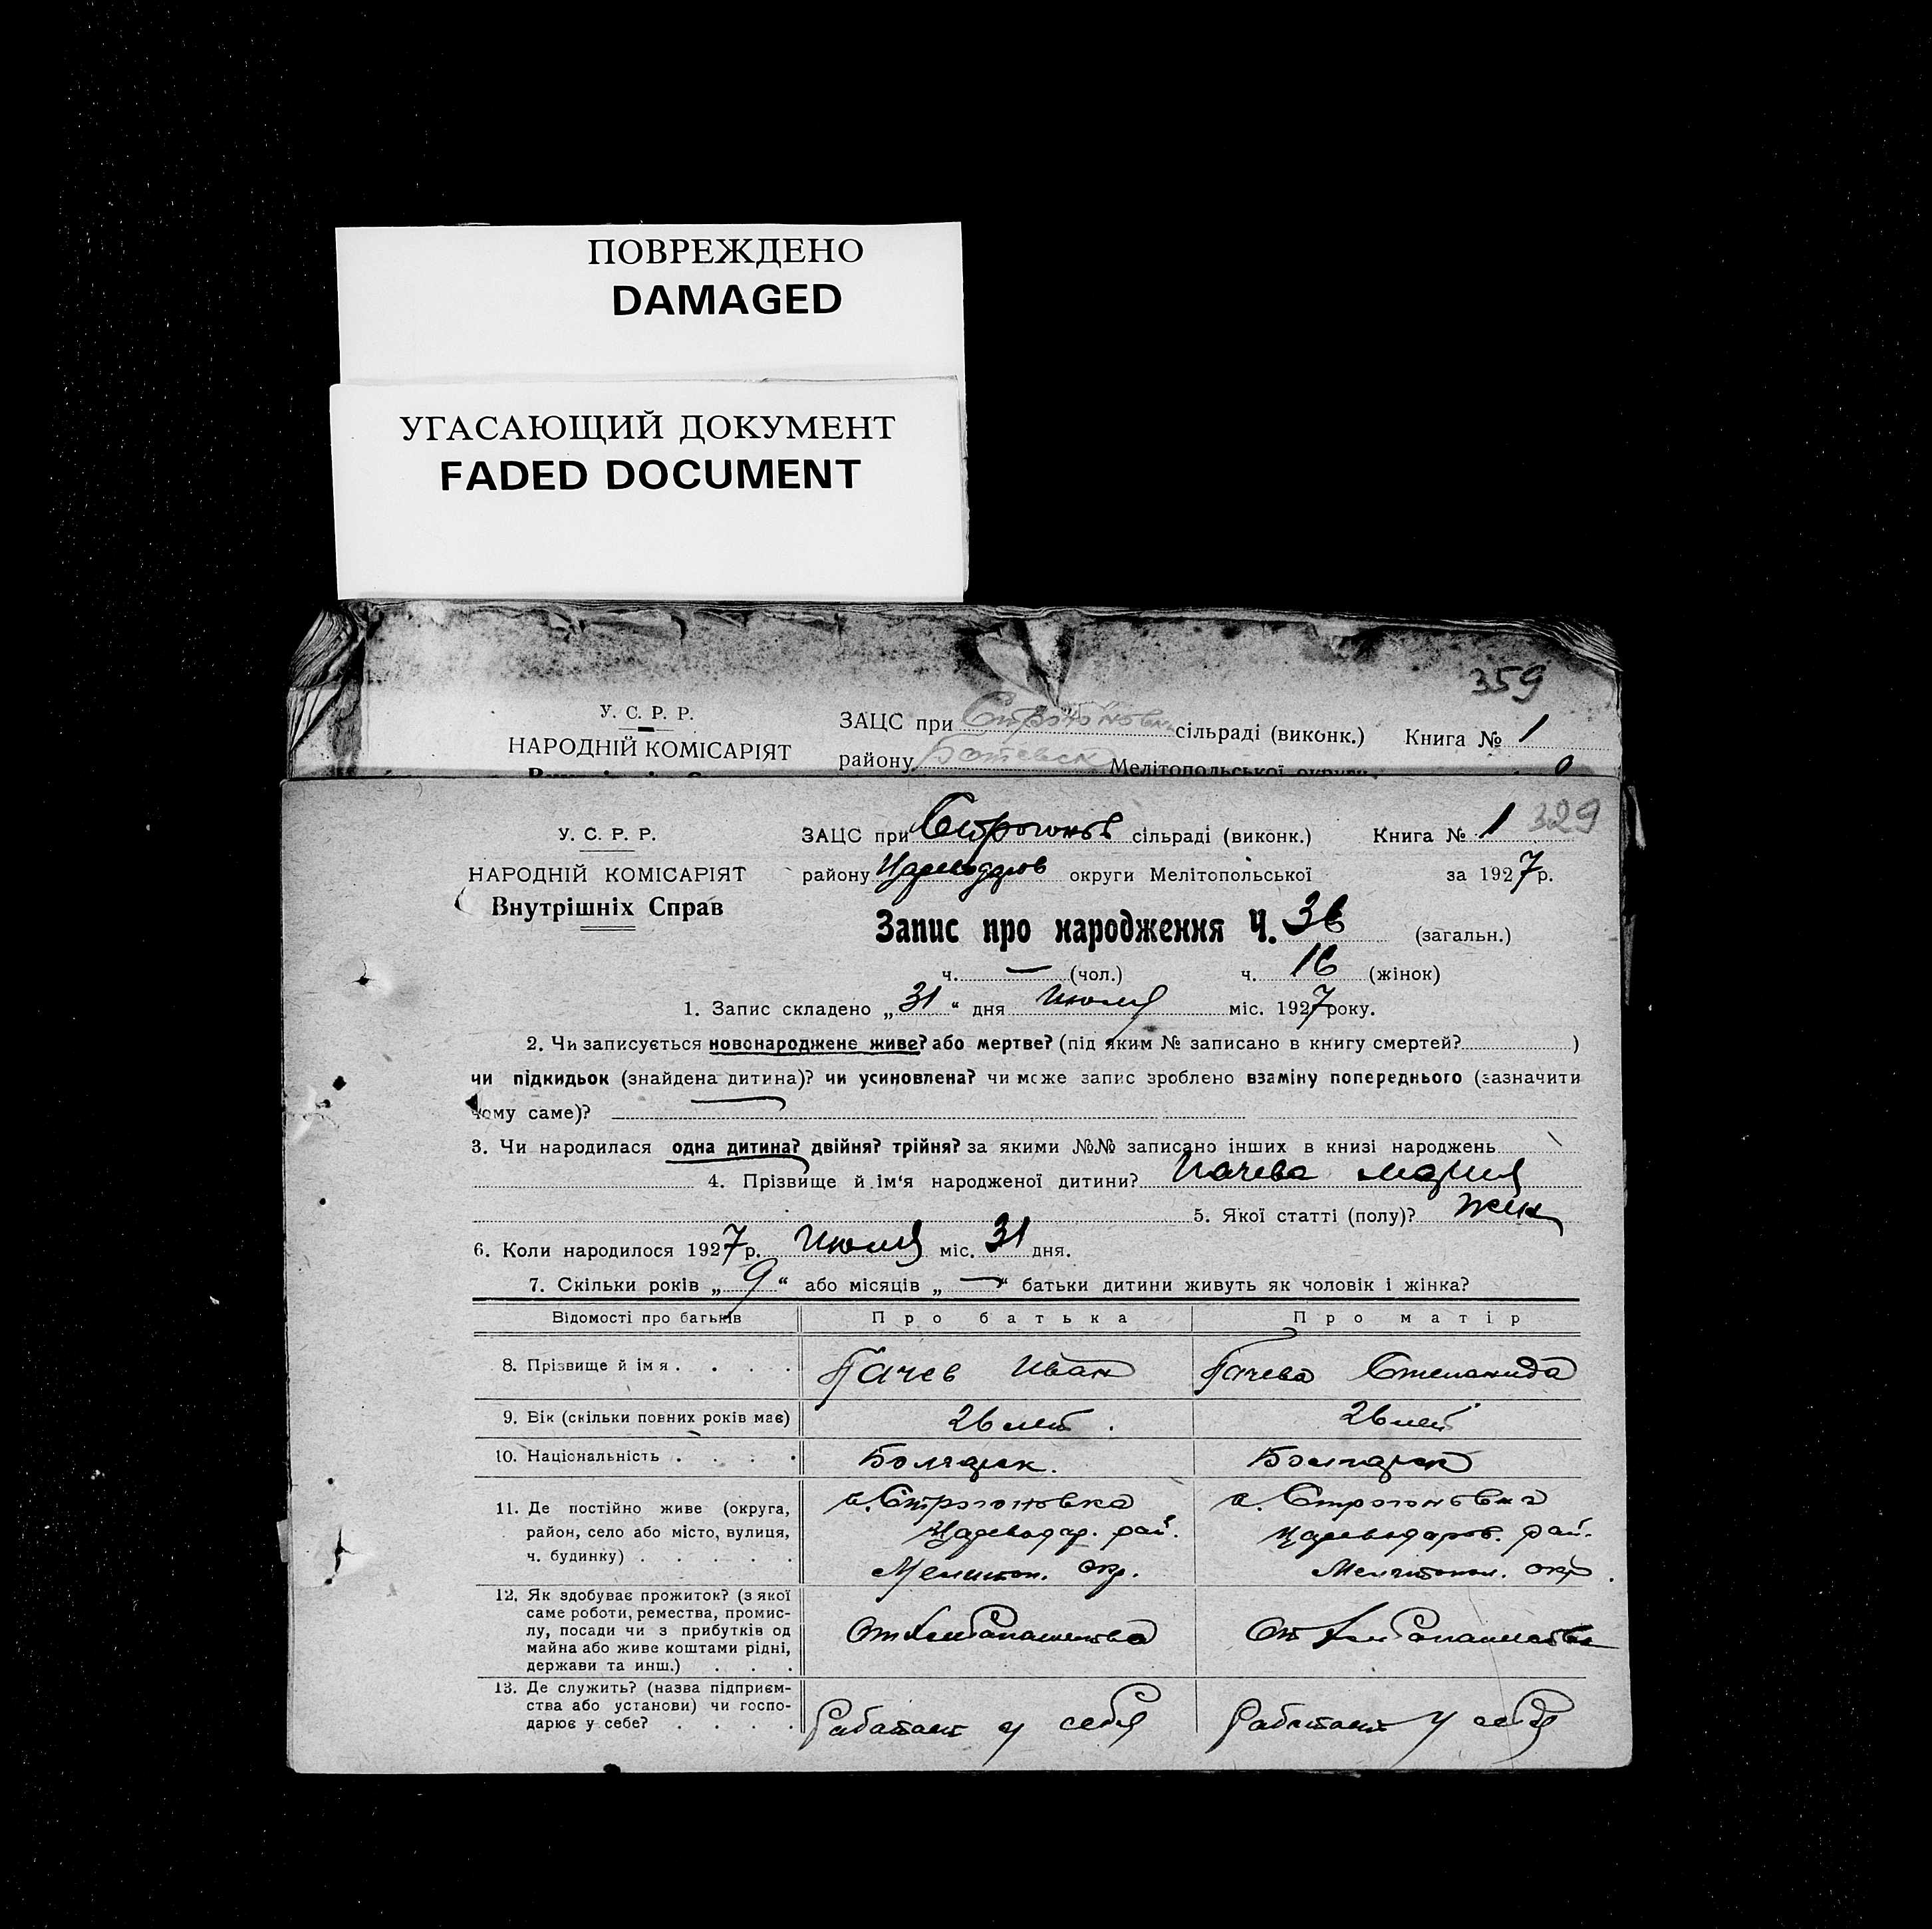 ПОВРЕЖДЕНО
DAMAGED
УГАСАЮЩИЙ ДОКУМЕНТ
FADED DOCUMENT
359
У. С. Р. Р.
ЗАЦС при сільраді (виконк.) Книга № 1
НАРОДНІЙ КОМІСАРІЯТ
району Ботевск Мелітопольської округи
329
У. С. Р. Р.
ЗАЦС при Строгонов сільраді (виконк.) Книга № 1
НАРОДНІЙ КОМІСАРІЯТ
району Цареводаров округи Мелітопольської за 1927 р.
Внутрішніх Справ
Запис про народження Ч. 36 (загальн.)
ч. — (чол.) ч. 16 (жінок)
1. Запис складено „31“ дня Июля міс. 1927 року.
2. Чи записується новонароджене живе? або мертве? (під яким № записано в книгу смертей? )
чи підкидьок (знайдена дитина)? чи усиновлена? чи може запис зроблено взаміну попереднього (зазначити
чому саме)?
3. Чи народилася одна дитина? двійня? трійня? за якими №№ записано інших в книзі народжень
4. Прізвище й ім‘я народженої дитини? Мария
5. Якої статті (полу)? жен
6. Коли народилося 1927 р. Июля міс. 31 дня.
7. Скільки років „9“ або місяців „—“ батьки дитини живуть як чоловік і жінка?
Відомості про батьків Про батька Про матір
8. Прізвище й імя . . . . Иван Степанида
9. Вік (скільки повних років має) 26 лет. 26 лет
10. Національність . . . . Болгарск. Болгарск
11. Де постійно живе (округа, с. Строгоновка с. Строгоновка
район, село або місто, вулиця, Цареводар. рай. Цареводаров. рай.
ч. будинку) . . . . . Мелитоп. окр. Мелитопол. окр.
12. Як здобуває прожиток? (з якої
саме роботи, ремества, промис-
лу, посади чи з прибутків од От хлебопашества От хлебопашества
майна або живе коштами рідні,
держави та инш.) . . .
13. Де служить? (назва підприєм-
ства або установи) чи госпо-
дарює у себе? . . . . Работает у себя Работает у себя